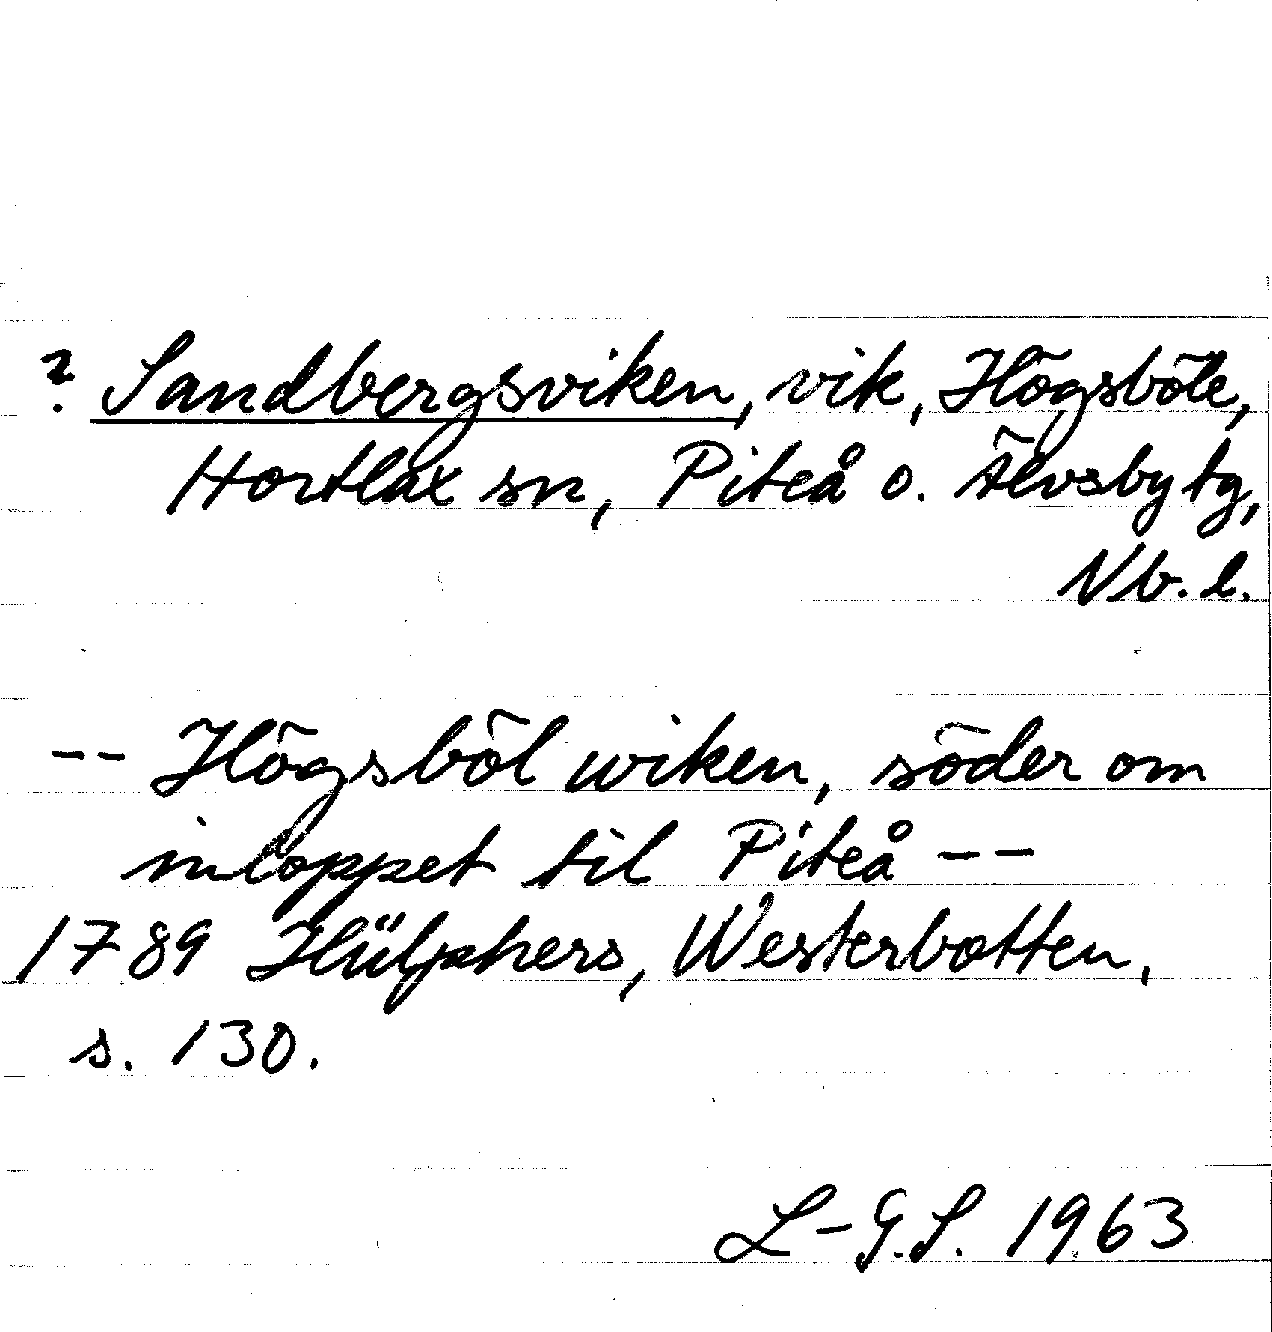 ? Sandbergsviken, vik, Högsböle,
Hortlax sn, Piteå o. Älvsby tg,
Nb. l.
-- Högsböl wiken, söder om
inloppet til Piteå --
1789 Hülphers, Westerbotten,
s. 130.
L-G.S. 1963